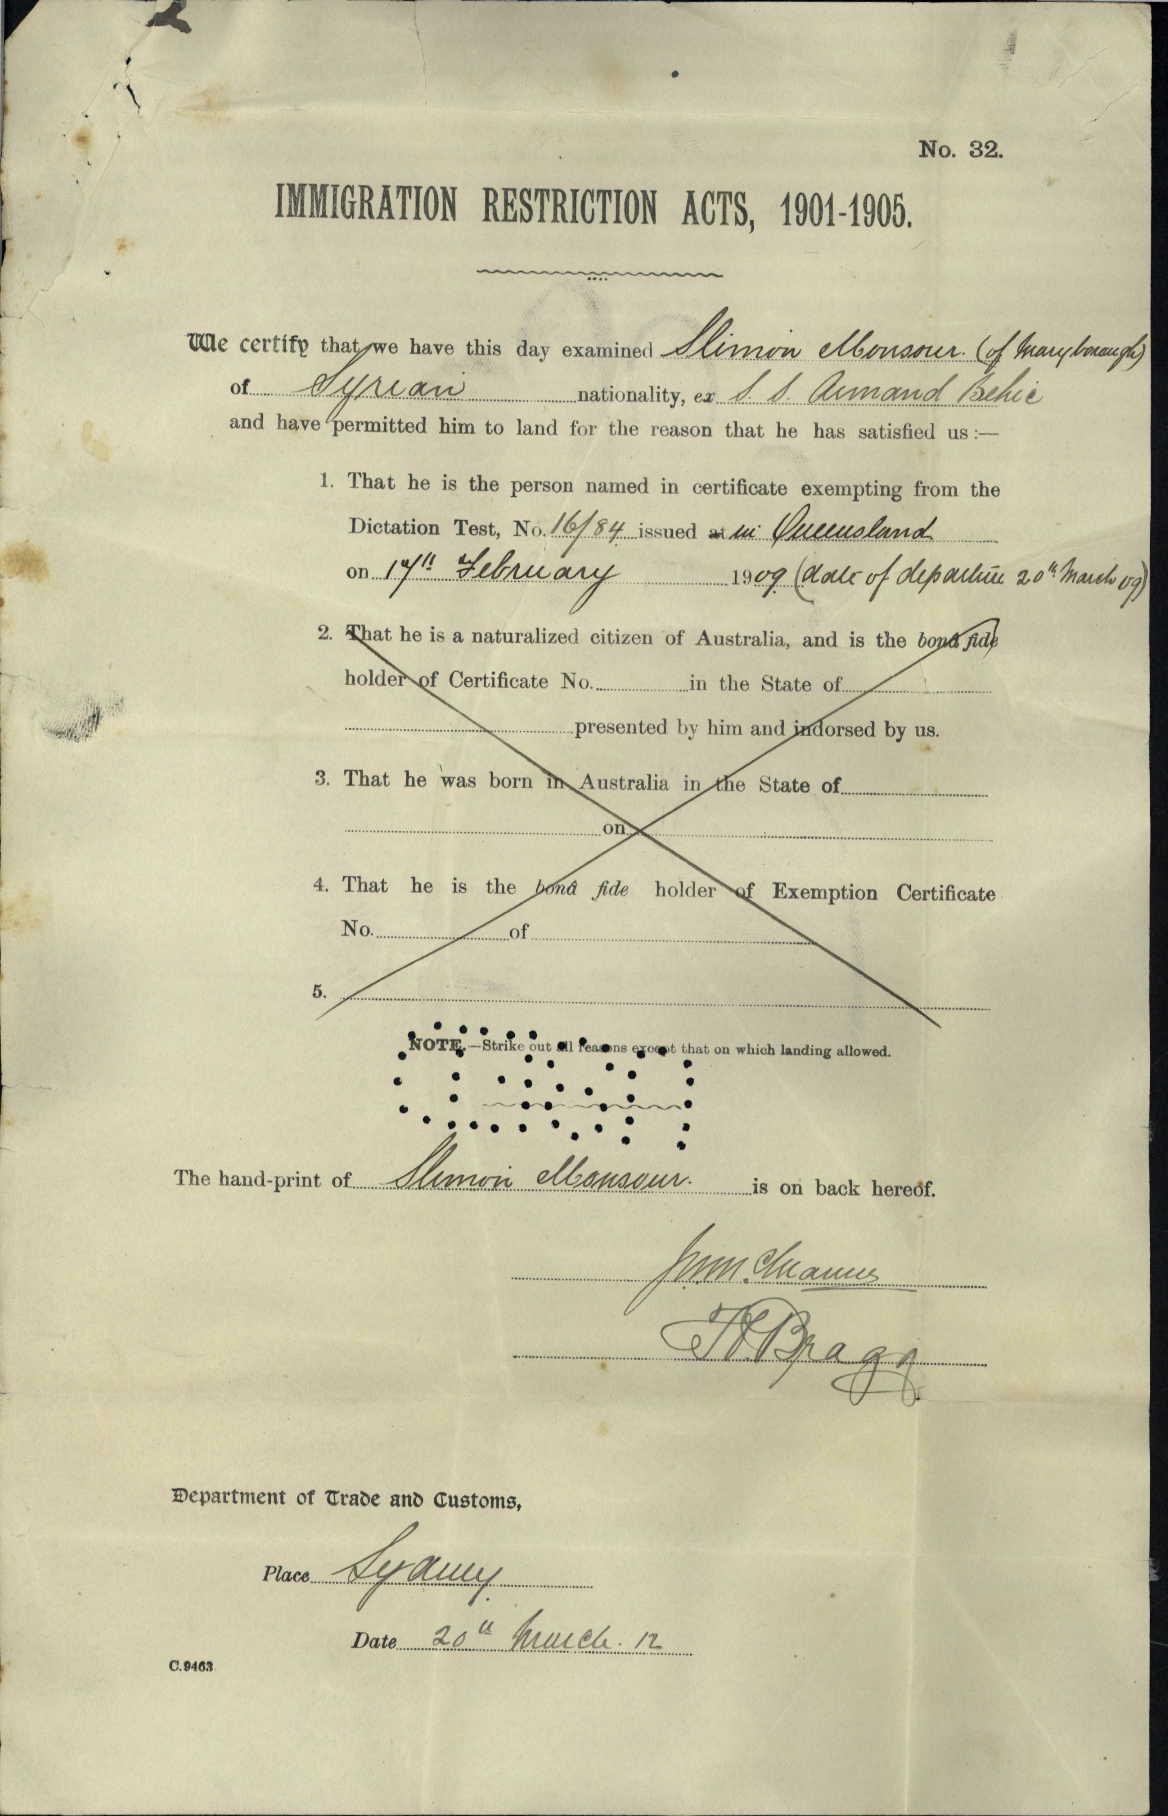 No. 32.
IMMIGRATION RESTRICTION ACTS, 1901-1905.
We certify that we have this day examined Slimon Monsour. (of Maryborough)
of Syrian nationality, ex S. S. Armand Behic
and have permitted him to land for the reason that he has satisfied us :—
1. That he is the person named in certificate exempting from the
Dictation Test, No. 16/84 issued at in Queensland
on 17th February 1909 (date of departure 20th March 09)
2. That he is a naturalized citizen of Australia, and is the bonâ fide
holder of Certificate No. in the State of
presented by him and indorsed by us.
3. That he was born in Australia in the State of
on
4. That he is the bonâ fide holder of Exemption Certificate
No. of
5.
NOTE.—Strike out all reasons except that on which landing allowed.
The hand-print of Slimon Monsour. is on back hereof.
Bragg
Department of Trade and Customs,
Place Sydney
Date 20th March. 12
C.9463